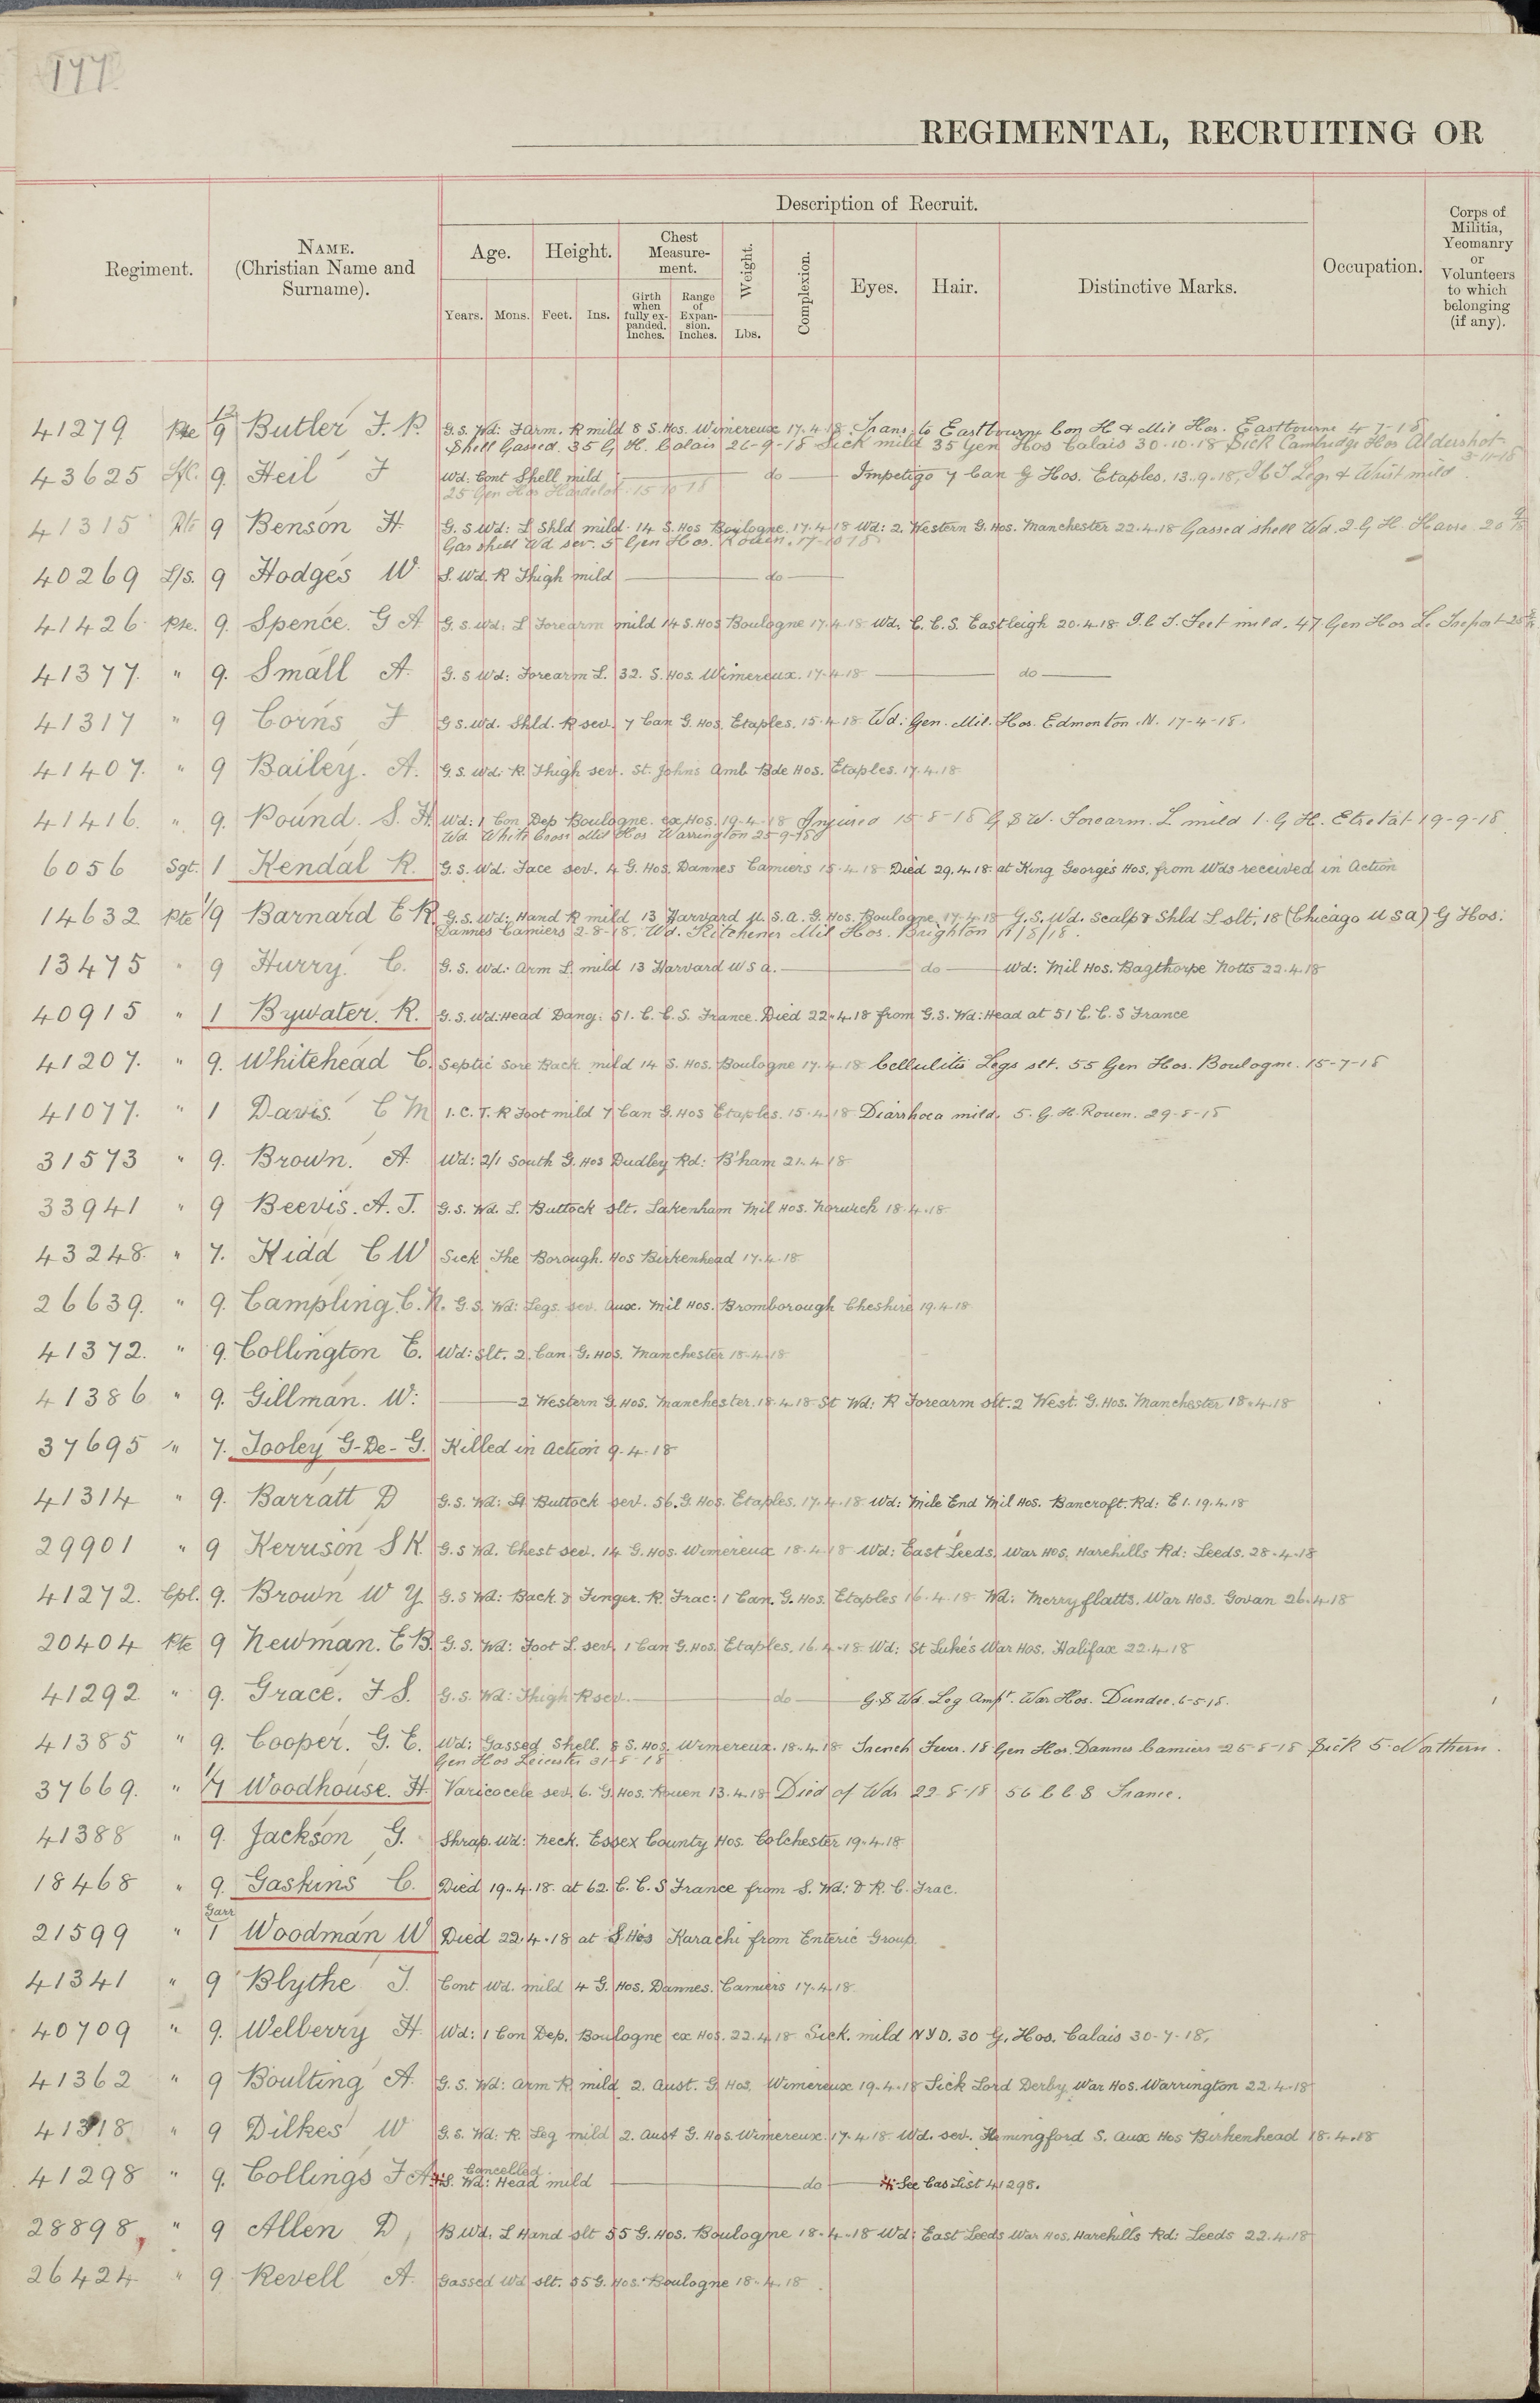 177
REGIMENTAL, RECRUITING OR
Regiment.
NAME.
(Christian Name and
Surname).
Description of Recruit.
Age.
Years. Mons.
Height.
Feet. Ins.
Chest
Measure-
ment.
Girth
when
fully ex-
panded.
Inches.
Range
of
Expan-
sion.
Inches.
Weight.
Lbs.
Complexion.
Eyes.
Hair.
Distinctive Marks.
Occupation.
Corps of
Militia,
Yeomanry
or
Volunteers
to which
belonging
(if any).
41279 Pte 12/9 Butler F. P. G.S. Wd: Farm. R mild 8 S. Hos. Wimereux 17.4.18. Trans. to Eastbourne Con H & Mil Hos. Eastbourne 4-7-18
Shell Gassed. 35 G. H. Calais 26-9-18 Sick mild 35 Gen Hos Calais 30.10.18 Sick Cambridge Hos Aldershot
3-11-18
43625 L/C. 9. Heil F Wd: Cont Shell mild do Impetigo 7 Can G Hos. Etaples. 13.9.18, I C T Leg & Wrist mild
25 Gen Hos Hardelot 15 10 18
41315 Pte 9 Benson H. G.S Wd: L Shld mild. 14 S. Hos Boulogne. 17.4.18 Wd: 2. Western G. Hos. Manchester 22.4.18 Gassed shell Wd. 2. G H. Havre. 20 9/18
Gas shell Wd sev. 5 Gen Hos. Rouen. 17-10 18
40269 L/S. 9 Hodges W. S. Wd. R Thigh mild do
41426 Pte. 9. Spence. G A G.S. Wd: L Forearm mild 14 S. Hos Boulogne 17.4.18 Wd. C.C.S. Eastleigh 20.4.18 I.C.T. Feet mild. 47 Gen Hos Le Treport 25
41377. " 9. Small A. G.S Wd: Forearm L. 32. S. Hos. Wimereux. 17.4.18 do
41317 " 9 Corns F G S. Wd. Shld. R sev. 7 Can G. Hos. Etaples. 15.4.18 Wd: Gen. Mil. Hos. Edmonton. N. 17-4-18.
41407. " 9 Bailey. A. G.S. Wd: R. Thigh sev. St. Johns Amb Bde Hos. Etaples. 17.4.18
41416. " 9. Pound. S. H. Wd: 1 Con Dep Boulogne. ex Hos. 19-4-18 Injured 15-8-18 G S W. Forearm. L mild 1. G H. Etretat 19-9-18
Wd. White Cross Mil Hos Warrington 25-9-18
6056 Sgt. 1 Kendal R. G.S. Wd. Face sev. 4 G. Hos. Dannes Camiers 15.4.18 Died 29.4.18 at King George's Hos. from Wds received in Action
14632 Pte 1/9 Barnard E R. G.S. Wd: Hand R mild 13 Harvard U.S.A. G. Hos. Boulogne. 17.4.18 G.S. Wd. Scalp & Shld L slt. 18 (Chicago U S A) G Hos:
Dannes Camiers 2-8-18. Wd. Kitchener Mil Hos. Brighton 11/8/18.
13475 " 9 Hurry. C. G.S. Wd: Arm L. mild 13 Harvard U S A. do Wd: Mil Hos. Bagthorpe Notts 22.4.18
40915 " 1 Bywater. R. G.S. Wd: Head Dang: 51. C.C.S. France. Died 22.4.18 from G.S. Wd: Head at 51 C.C.S France
41207. " 9. Whitehead C. Septic Sore Back mild 14 S. Hos. Boulogne 17.4.18 Cellulitis Legs slt. 55 Gen Hos. Boulogne. 15-7-18
41077. " 1 Davis. C M 1.C.T. R Foot mild 7 Can G. Hos Etaples. 15.4.18 Diarrhoea mild. 5. G. H. Rouen. 29-8-18
31573 " 9. Brown. A. Wd: 2/1 South G. Hos Dudley Rd: B'ham 21.4.18
33941 " 9 Beevis. A. J. G.S. Wd. L. Buttock slt. Lakenham Mil Hos. Norwich 18.4.18
43248. " 7. Kidd C W Sick The Borough. Hos Birkenhead 17.4.18
26639. " 9. Campling. C. N. G.S. Wd: Legs. sev. Aux. Mil Hos. Bromborough Cheshire 19.4.18
41372. " 9. Collington E. Wd: slt. 2 Can G. Hos. Manchester 18.4.18
41386 " 9. Gillman. W: 2 Western G. Hos. Manchester. 18.4.18 St Wd: R Forearm slt. 2 West. G. Hos. Manchester 18.4.18
37695 " 7. Tooley G-De-G. Killed in Action 9.4.18
41314 " 9. Barratt D G.S. Wd: Buttock sev. 56. G. Hos. Etaples. 17.4.18 Wd: Mile End Mil Hos. Bancroft. Rd: E 1. 19.4.18
29901 " 9 Kerrison S K. G.S Wd. Chest sev. 14 G. Hos. Wimereux 18.4.18 Wd: East Leeds. War Hos. Harehills Rd: Leeds. 28.4.18
41272. Cpl. 9. Brown W Y. G.S Wd: Back & Finger. R. Frac: 1 Can. G. Hos. Etaples 16.4.18 Wd: Merryflatts. War Hos. Govan 26.4.18
20404 Pte 9 Newman. E B. G.S. Wd: Foot L. sev. 1 Can G. Hos. Etaples. 16.4.18 Wd: St Luke's War Hos. Halifax 22.4.18
41292 " 9. Grace. F S. G.S. Wd: Thigh R sev. do G.S Wd Leg Ampt. War Hos. Dundee. 6-5-18.
41385 " 9. Cooper. G. E. Wd: Gassed Shell. 8 S. Hos. Wimereux. 18.4.18 Trench Fever. 18 Gen Hos. Dannes Camiers 25-8-18 Sick 5. Northern.
Gen Hos Leicester 31-8-18
37669. " 1/7 Woodhouse. H. Varicocele sev. 6. G. Hos. Rouen 13.4.18 Died of Wds 22-8-18 56 C C S France.
41388 " 9. Jackson G. Shrap. Wd: Neck. Essex County Hos. Colchester 19.4.18
18468 " 9. Gaskins C. Died 19.4.18. at 62. C.C.S France from S. Wd: & R. C. Frac.
21599 " Garr 1 Woodman W Died 22.4.18 at S. Hos Karachi from Enteric Group.
41341 " 9 Blythe J. Cont Wd. mild 4 G. Hos. Dannes. Camiers 17.4.18.
40709 " 9. Welberry H. Wd: 1 Con Dep. Boulogne ex Hos. 22.4.18 Sick. mild NYD. 30 G. Hos. Calais 30-7-18.
41362 " 9 Boulting A. G.S. Wd: Arm R. mild 2. Aust. G. Hos. Wimereux 19.4.18 Sick Lord Derby War Hos. Warrington 22.4.18
41318 " 9 Dilkes W G.S. Wd: R. Leg mild 2. Aust G. Hos. Wimereux. 17.4.18 Wd. sev. Hemingford S. Aux Hos Birkenhead 18.4.18
41298 " 9. Collings F A. Cancelled
S. Wd: Head mild do See Cas List 41298.
28898. " 9 Allen D, B Wd. L Hand slt 55 G. Hos. Boulogne 18.4.18 Wd: East Leeds War Hos. Harehills Rd: Leeds 22.4.18
26424 " 9. Revell A. Gassed Wd slt. 55 G. Hos. Boulogne 18.4.18